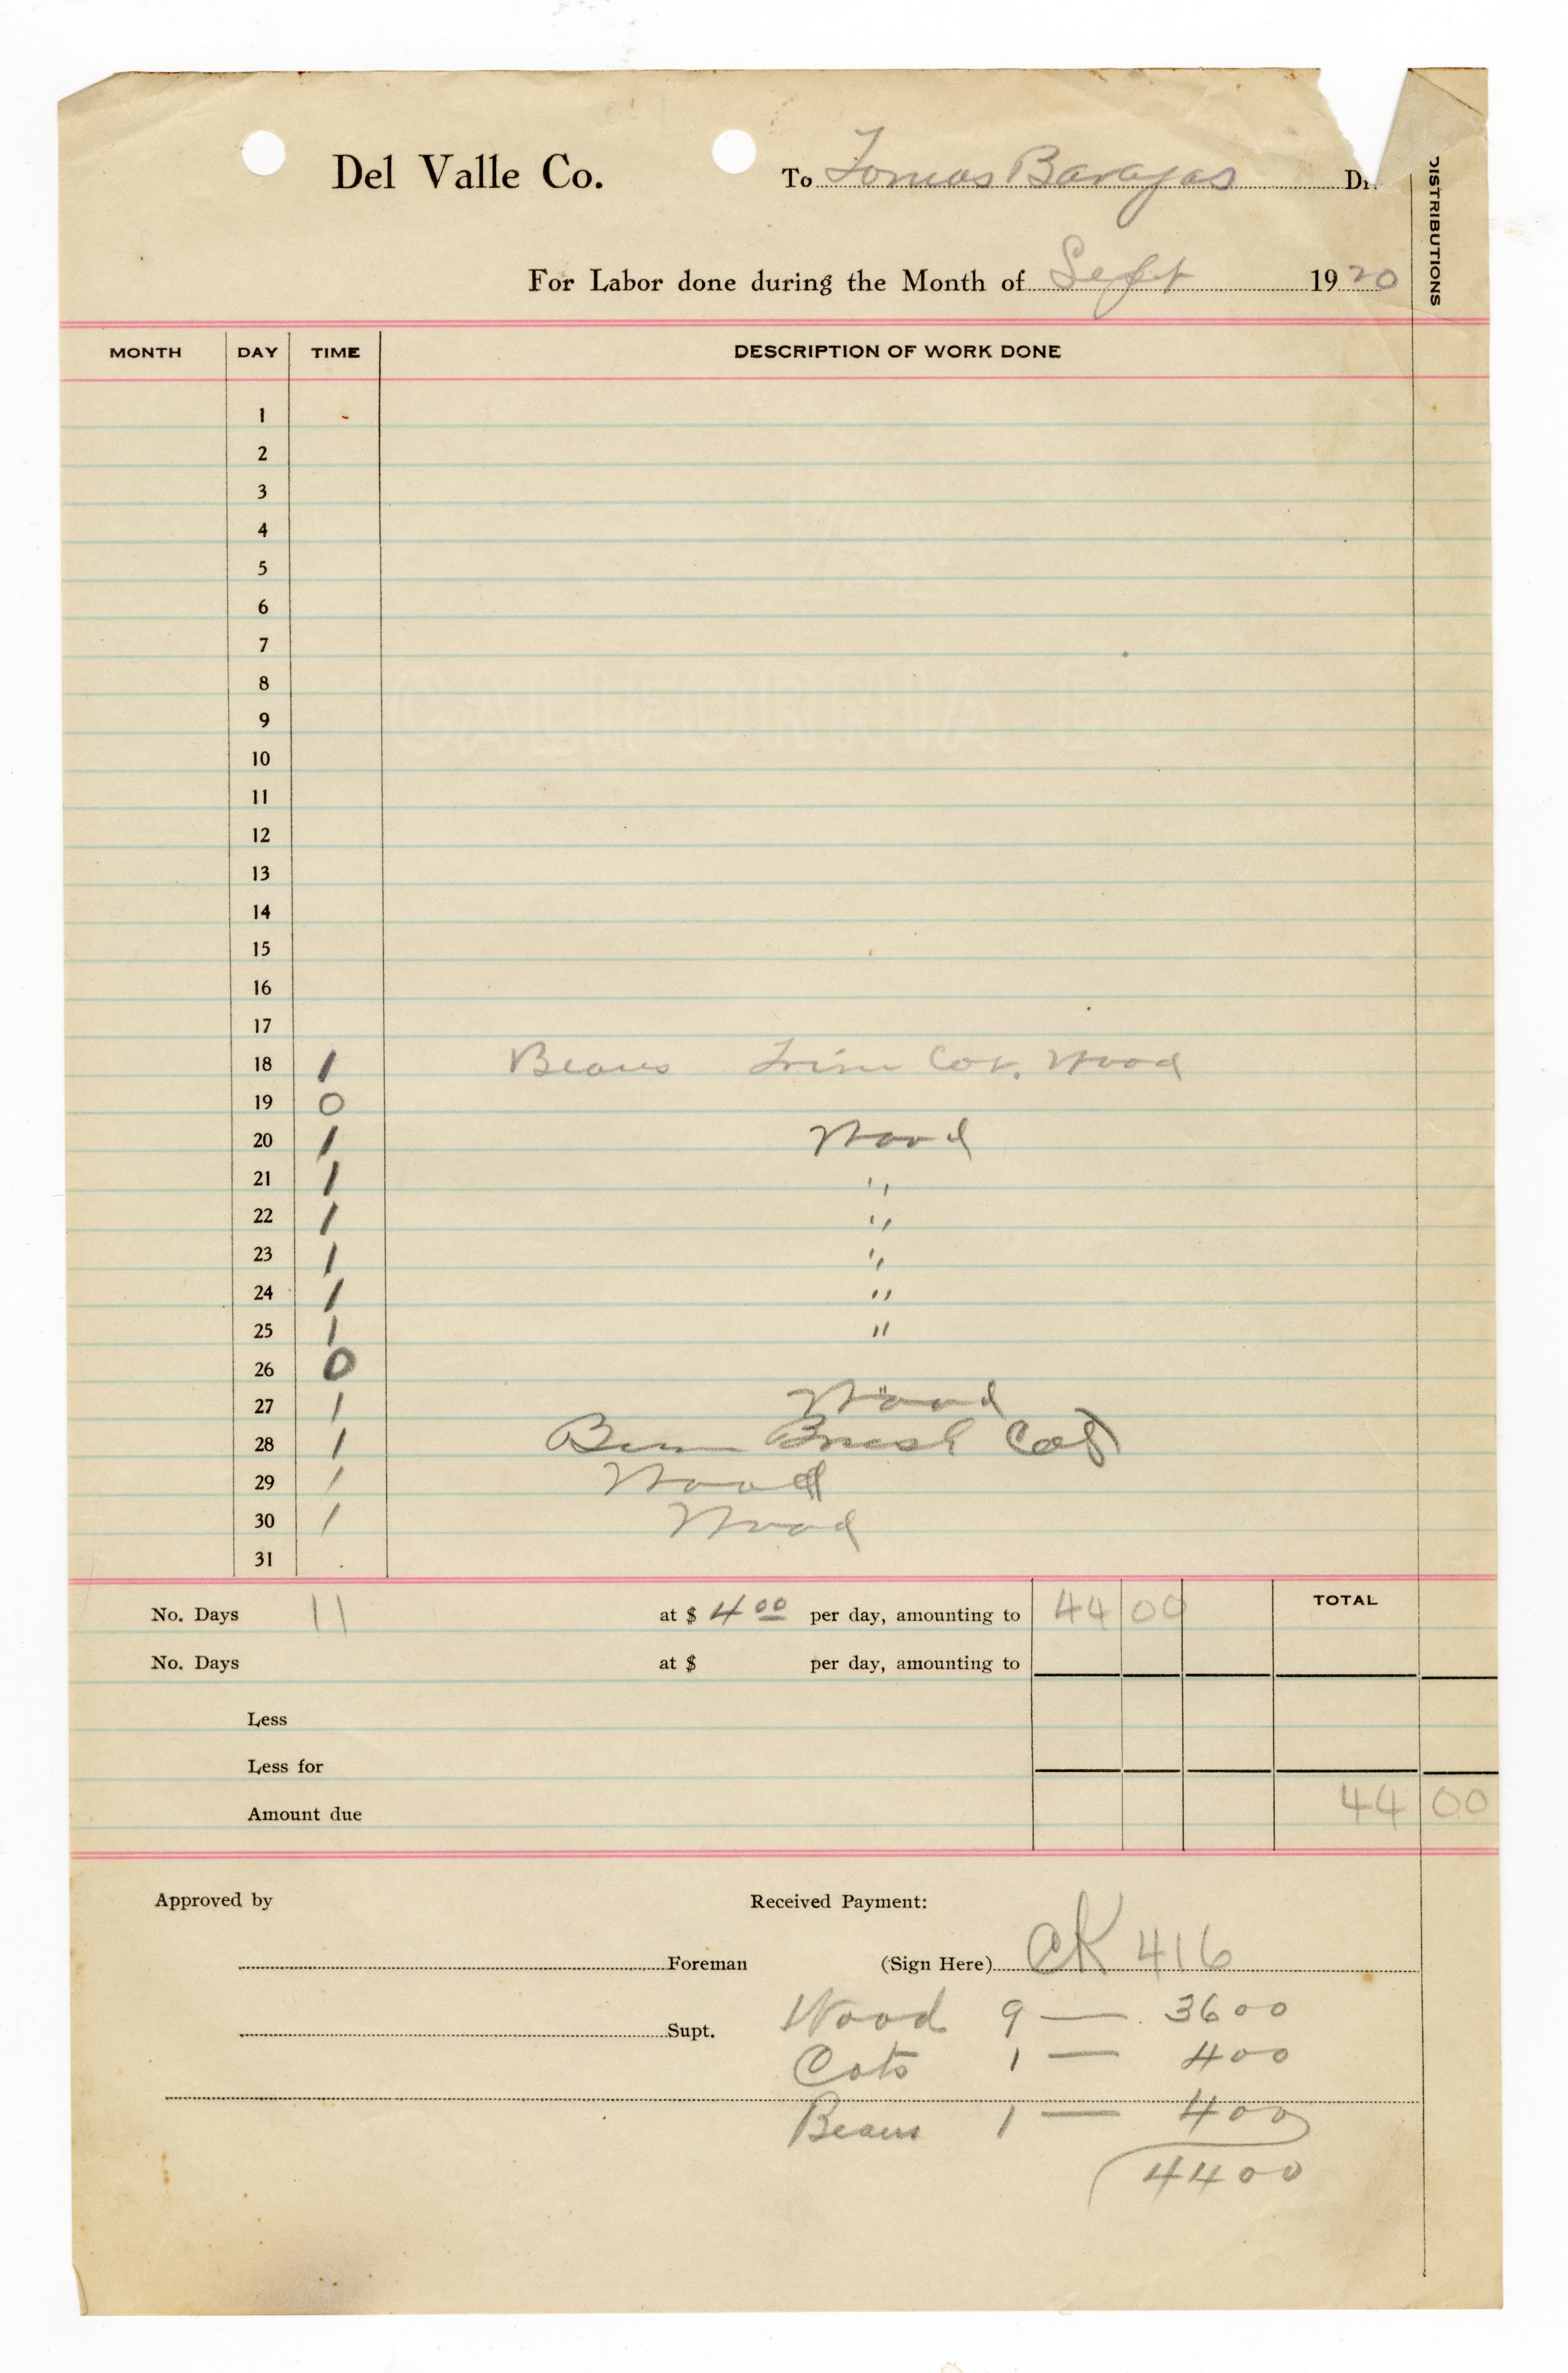 Del Valle Co. To Tomas Barajas Dr.
DISTRIBUTIONS
For Labor done during the Month of Sept 1920
MONTH DAY TIME DESCRIPTION OF WORK DONE
1
2
3
4
5
6
7
8
9
10
11
12
13
14
15
16
17
18 1 Beans Trim Cot. Wood
19 0
20 1 Wood
21 1 "
22 1 "
23 1 "
24 1 "
25 1 "
26 0
27 1 Wood
28 1 Burn Brush Cots
29 1 Wood
30 1 Wood
31
No. Days 11 at $ 4 00 per day, amounting to 44 00 TOTAL
No. Days at $ per day, amounting to
Less
Less for
Amount due 44 00
Approved by Received Payment:
Foreman (Sign Here) CK 416
Wood 9 — 36 00
Supt.
Cots 1 — 4 00
Beans 1 — 4 00
44 00